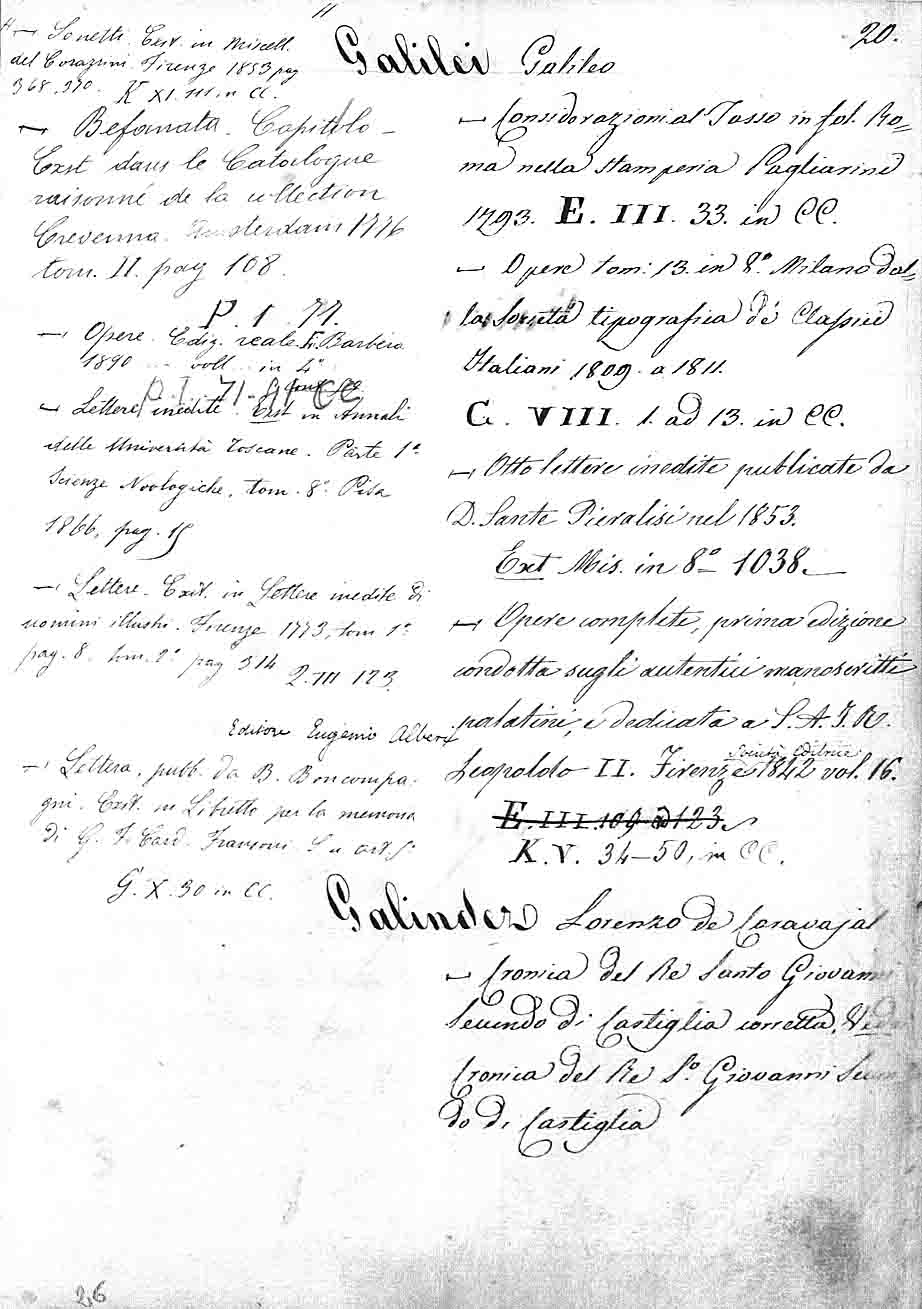 20.
— Sonetti. Exst. in Miscell.
del Corazzini. Firenze 1853 pag
368. 370. K XI. III. in CC.
— Befanata. Capitolo —
Exst dans le Catalogue
raisonné de la collection
Crevenna. Amsterdam 1776
tom. II. pag 108.
P. 1. 71.
— Opere. Ediz. reale. Fi. Barbèra
1890 ... voll ... in 4°
P. I. 71-91 CC
— Lettere inedite. Exst in Annali
delle Università Toscane. Parte 1ª
Scienze Noologiche, tom. 8° Pisa
1866, pag. 15
— Lettere. Exit. in Lettere inedite di
uomini illustri. Firenze 1773, tom 1°
pag. 8. tom. 2° pag 314
2. III 123.
Editore Eugenio Alberi
— Lettera, pubb. da B. Boncompa-
gni. Exit. in Libretto per la memoria
di G. F. Card. Fransoni
G. X. 30 in CC.
Galilei Galileo
— Considerazioni al Tasso in fol. Ro=
ma nella stamperia Pagliarini
1793. E. III. 33. in CC.
— Opere tom: 13. in 8.° Milano dal=
la Società tipografica de' Classici
Italiani 1809. a 1811.
C. VIII. 1. ad 13. in CC.
— Otto lettere inedite publicate da
D. Sante Pieralisi nel 1853.
Ext Mis. in 8° — 1038.—
— Opere complete, prima edizione
condotta sugli autentici manoscritti
palatini, e dedicata a S. A. I. R.
Società Editrice
Leopoldo II. Firenze 1842 vol. 16.
E. III. 109 ad 123.
K. V. 34-50, in CC.
Galindez Lorenzo de Caravajal
— Cronica del Re Santo Giovanni
Secundo di Castiglia corretta. Vedi
Cronica del Re S.° Giovanni Secun
do di Castiglia
26